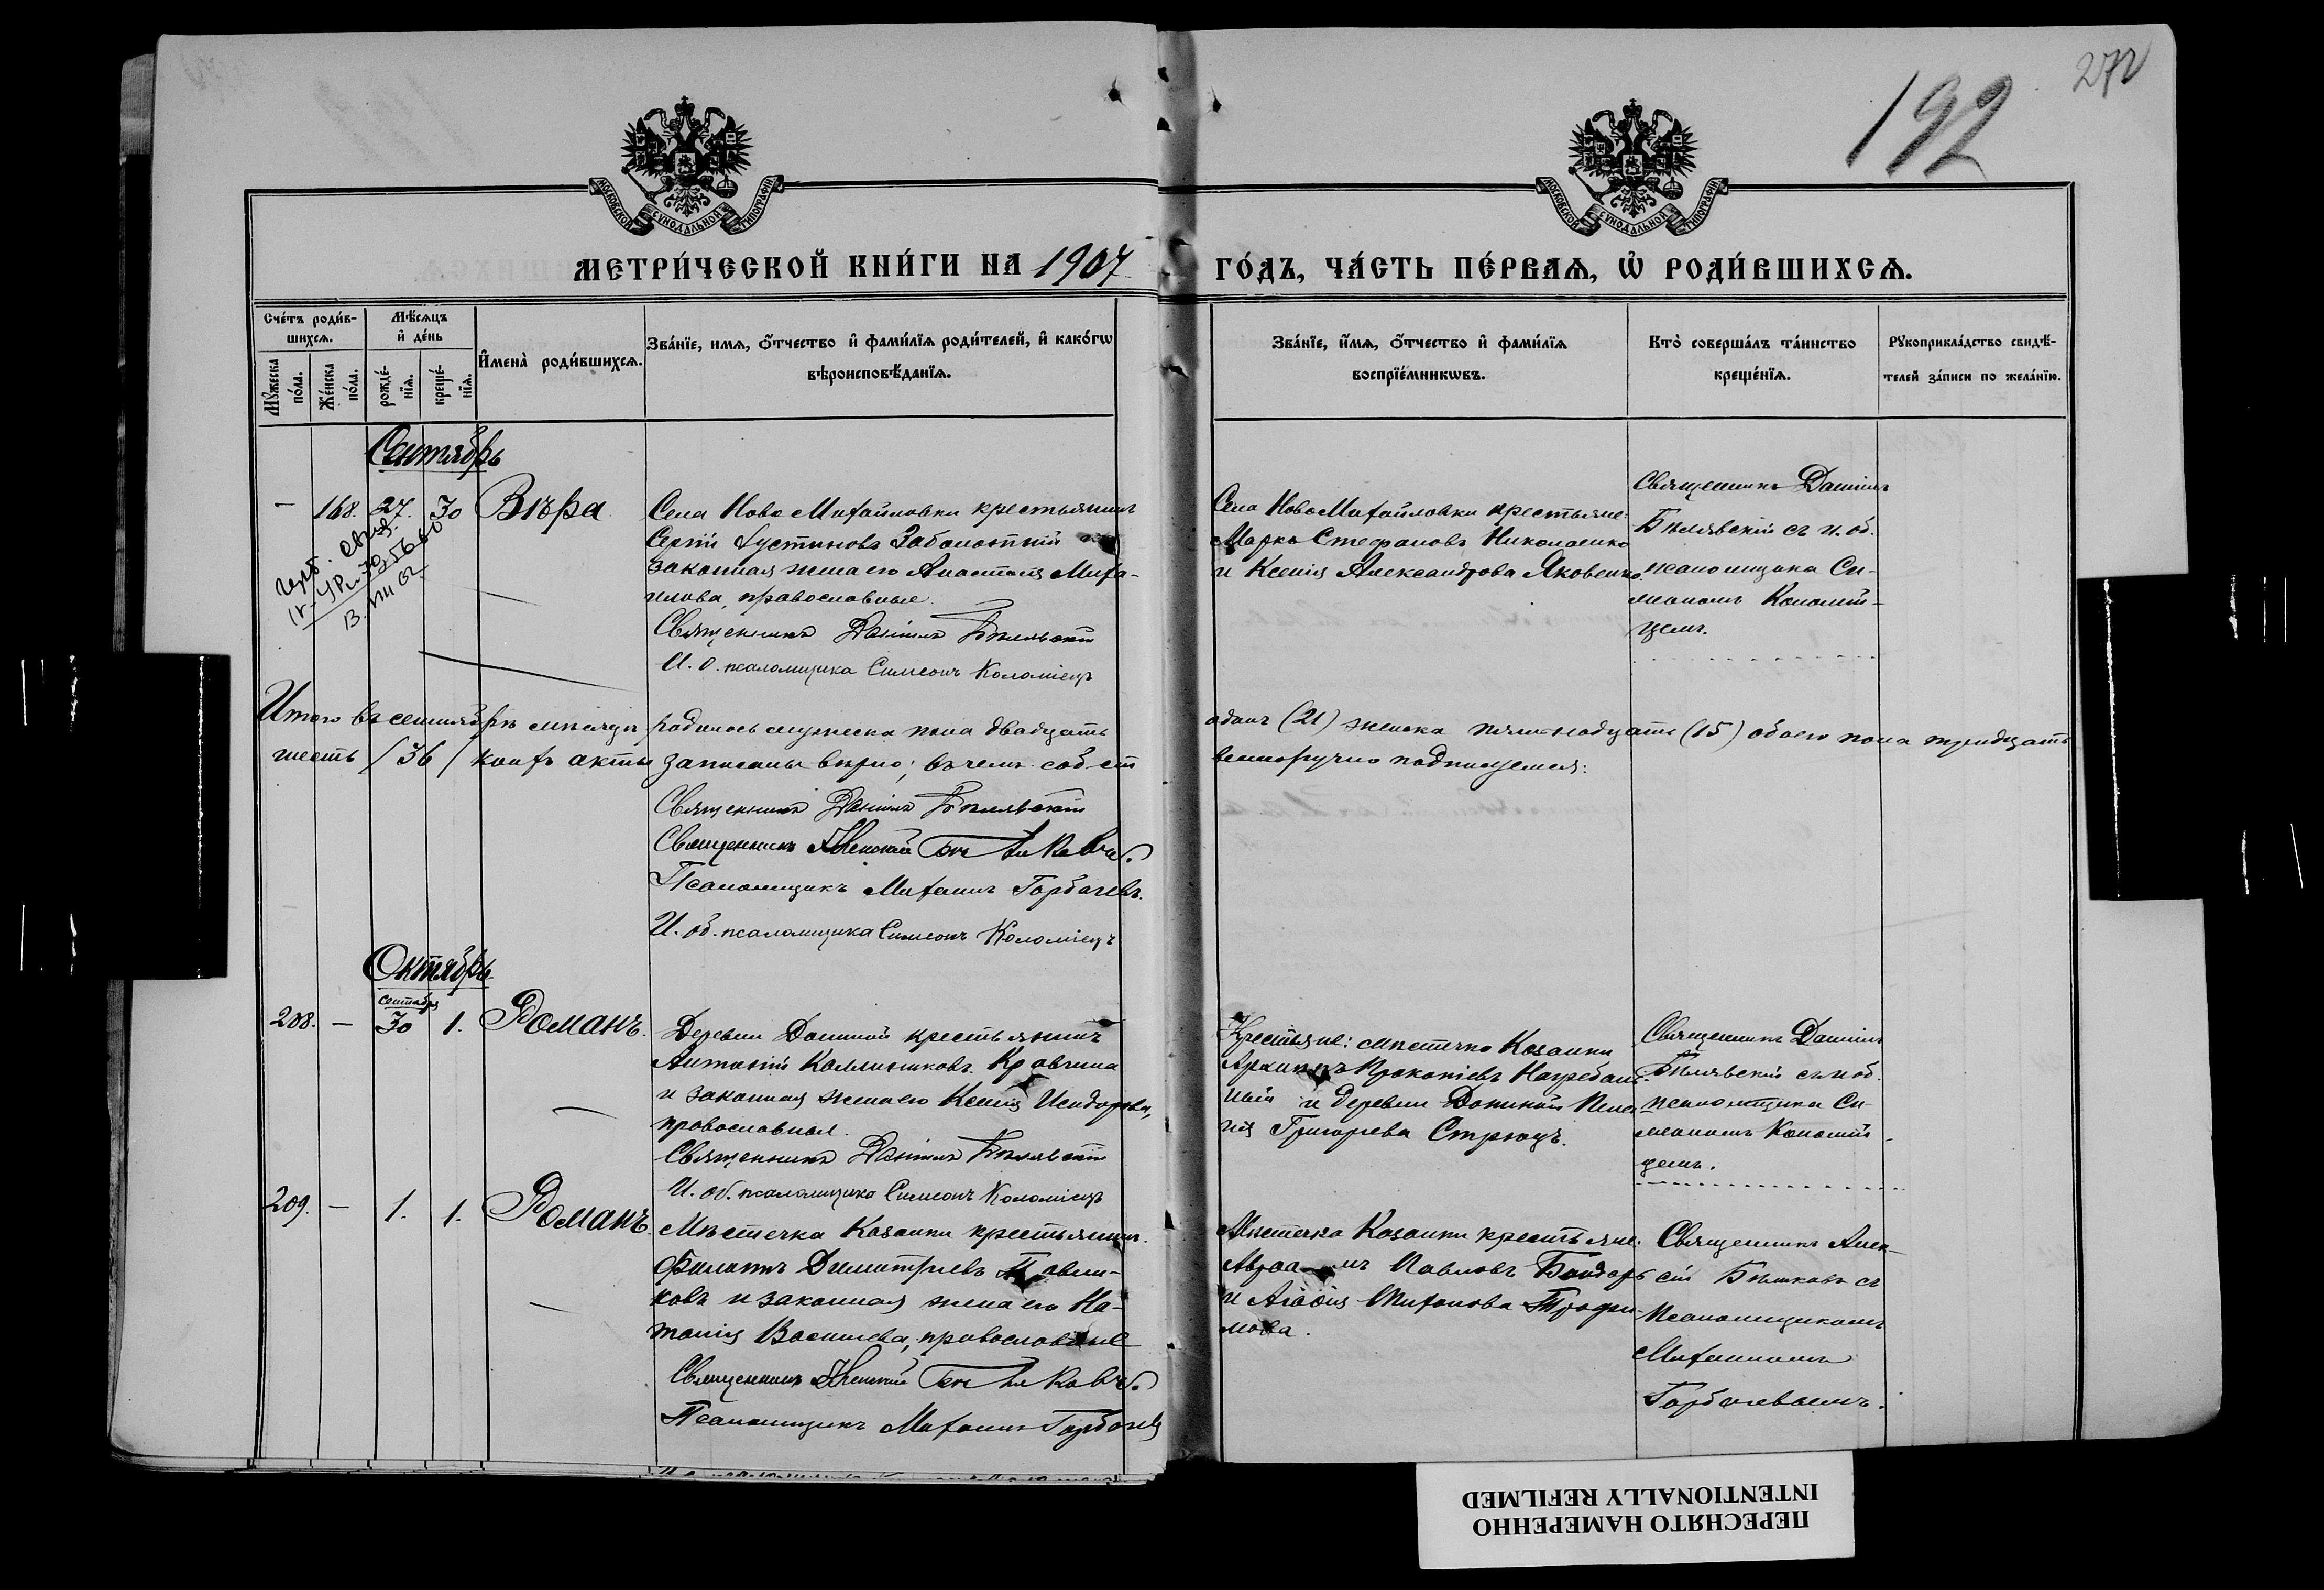 272
192
МОСКОВСКОЙ СѴНОДАЛЬНОЙ ТИПОГРАФІИ
МОСКОВСКОЙ СѴНОДАЛЬНОЙ ТИПОГРАФІИ
МЕТРИ́ЧЕСКОЙ КНИ́ГИ НА 1907 ГО́ДЪ, ЧА́СТЬ ПЕ́РВАѦ, Ѡ҆ РОДИ́ВШИХСѦ.
Сче́тъ роди́в-
шихсѧ.
Мꙋжеска по́ла.
Же́нска по́ла.
Мѣ́сѧцъ
и҆ де́нь
рожде́-
нїѧ.
креще́-
нїѧ.
И҆мена̀ роди́вшихсѧ.
Зва́нїе, имѧ, ѻ҆́тчество и҆ фами́лїѧ роди́телей, и҆ како́гѡ
вѣроисповѣ́данїѧ.
Зва́нїе, и҆́мѧ, ѻ҆́тчество и҆ фами́лїѧ
воспрїе́мникѡвъ.
Кто̀ соверша́лъ та́инство
креще́нїѧ.
Рꙋкоприкла́дство свидѣ́-
телей за́писи по жела́нїю.
Сентябрь
— 168. 27. 30 Вѣра
Села Ново Михайловки крестьянинъ
Сергій Іустиновъ Заболотній и
законная жена его Анастасія Миха-
илова, православные.
Священникъ Даніилъ Бѣлявскій
И. о. псаломщика Симеонъ Коломіецъ
Села НовоМихайловки крестьяне:
Марко Стефановъ Николаенко
и Ксенія Александрова Яковенко.
Священникъ Даніилъ
Бѣлявскій съ и. об.
псаломщика Си-
меономъ Коломій-
цемъ.
Итого въ сентябрѣ мѣсяцѣ родилось мужеска пола двадцать одинъ (21) женска пятнадцать (15) обоего пола тридцать
шесть (36) коихъ акты записаны вѣрно; въ чемъ собст венноручно подписуемся:
Священникъ Даніилъ Бѣлявскій
Священникъ Алексій Бѣликовъ.
Псаломщикъ Михаилъ Горбачевъ.
И. об. псаломщика Симеонъ Коломіецъ
Октябрь
208. — сентября 30 1. Романъ.
Деревни Доминой крестьянинъ
Антоній Каллиниковъ Кравчина
и законная жена его Ксенія Исидорова,
православная.
Священникъ Даніилъ Бѣлявскій
И. об. псаломщика Симеонъ Коломіецъ
Крестьяне: мѣстечка Казанки
Архипъ Прокопіевъ Нагребель-
ный и деревни Доминой Пела
гія Григорьева Стрюцъ.
Священникъ Даніилъ
Бѣлявскій съ и об.
псаломщика Си-
меономъ Коломій
цемъ.
209. — 1. 1. Романъ.
Мѣстечка Казанки крестьянинъ
Филиппъ Димитріевъ
ковъ и законная жена его На-
талія Васильева, православные
Священникъ Алексій Бѣликовъ.
Псаломщикъ Михаилъ Горбачевъ
Мѣстечка Казанки крестьяне:
Авраамъ Павловъ Бондарь
и Агафія Тихонова Трофи-
мова.
Священникъ Алек-
сій Бѣликовъ съ
Псаломщикомъ
Михаиломъ
Горбачевымъ.
ПЕРЕСНЯТО НАМЕРЕННО
INTENTIONALLY REFILMED